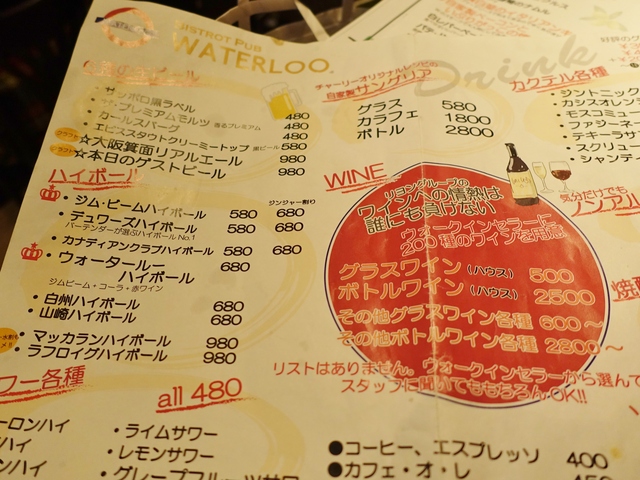 BISTROT PUB
WATERLOO.
Drink
サッポロ黒ラベル
プレミアムモルツ 香るプレミアム 480
カールスバーグ 480
エビススタウトクリーミートップ 黒ビール 580
☆大阪箕面リアルエール 980
☆本日のゲストビール 980
ハイボール
ジンジャー割り
・ジム・ビームハイボール 580 680
・デュワーズハイボール 580 680
バーテンダーが選ぶハイボールNo.1
・カナディアンクラブハイボール 580 680
・ウォータールー 680
ハイボール
ジムビーム・コーラ・赤ワイン
・白州ハイボール 680
・山崎ハイボール 680
・マッカランハイボール 980
・ラフロイグハイボール 980
ワー各種 all 480
ーロンハイ
ハイ
ンハイ
・ライムサワー
・レモンサワー
・グレープフルーツサワ
チャーリーオリジナルレシピの
自家製サングリア
グラス 580
カラフェ 1800
ボトル 2800
WINE
リヨングループの
ワインへの情熱は
誰にも負けない
ウォークインセラーに
200種のワインを用意
グラスワイン (ハウス) 500
ボトルワイン (ハウス) 2500
その他グラスワイン各種 600～
その他ボトルワイン各種 2800～
リストはありません。ウォークインセラーから選んで
スタッフに聞いてももちろんOK!!
●コーヒー、エスプレッソ 400
●カフェ・オ・レ
カクテル各種
ジントニック
カシスオレン
モスコミュー
ファジーネー
テキーラサ
スクリュー
シャンディ
気分だけでも
ノンアル
焼酎